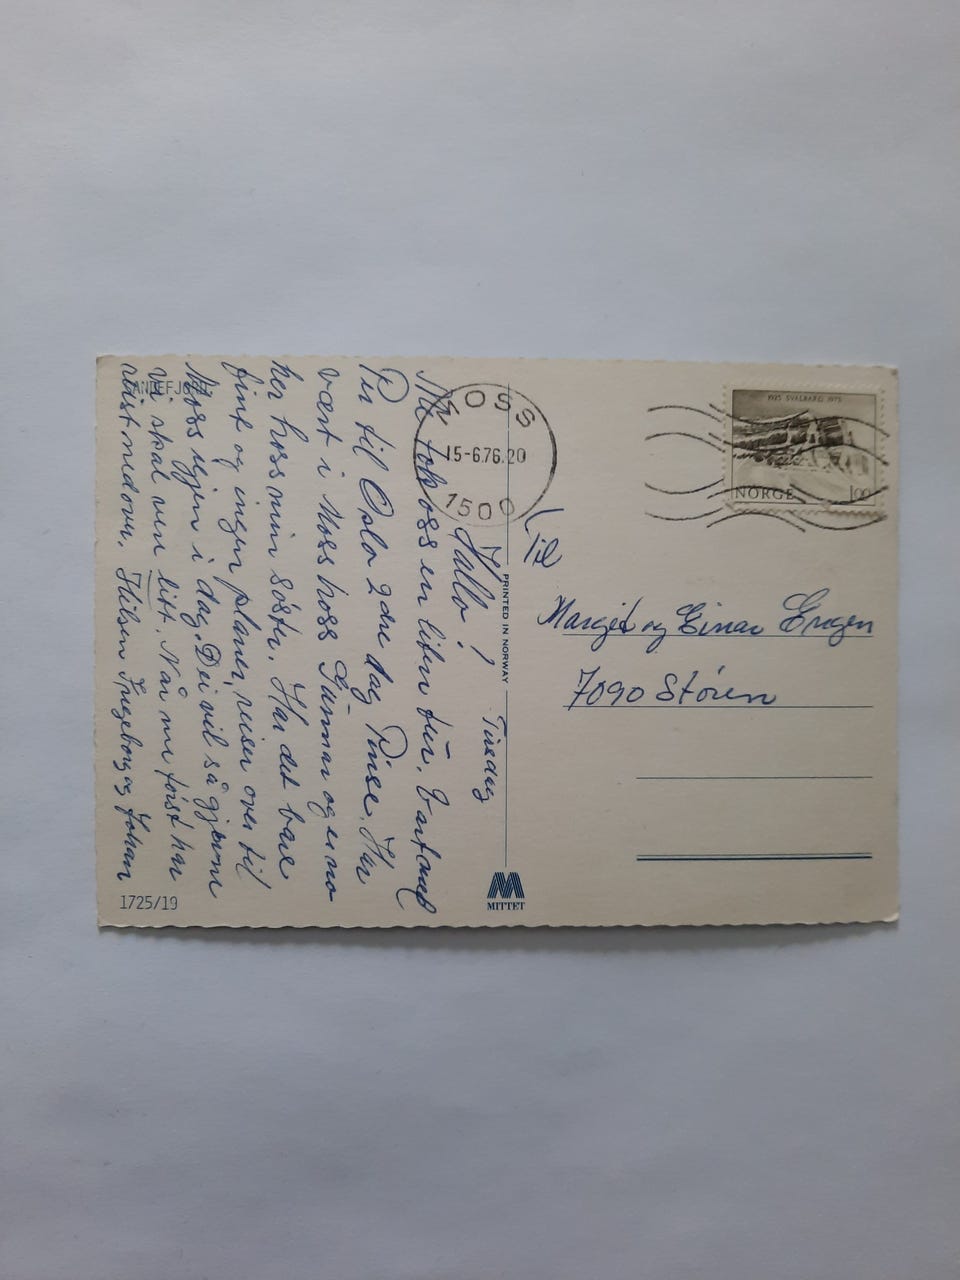 SANDEFJORD
Hallo! Tirsdag
tok oss en liten tur,
til Oslo 2dre dag Pinse. Har
vært i Moss hoss Gunnar og er no
her hoss min søster. Har det bare
fint og ingen planer, reiser over til
Moss igjen i dag. Dei vil så gjerne
vi skal være litt. Når me først har
reist nedover. Hilsen Ingeborg og Johan
1725/19
PRINTED IN NORWAY
MITTET
MOSS
15-6.76.20
1500
1925 SVALBARD 1975
NORGE 100
Til
Margit og Einar Engen
7090 Støren